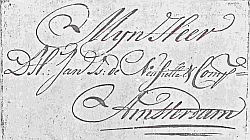 Myn Heer
D'H.: Jan Is. de Neufville & Comp.
Amsterdam